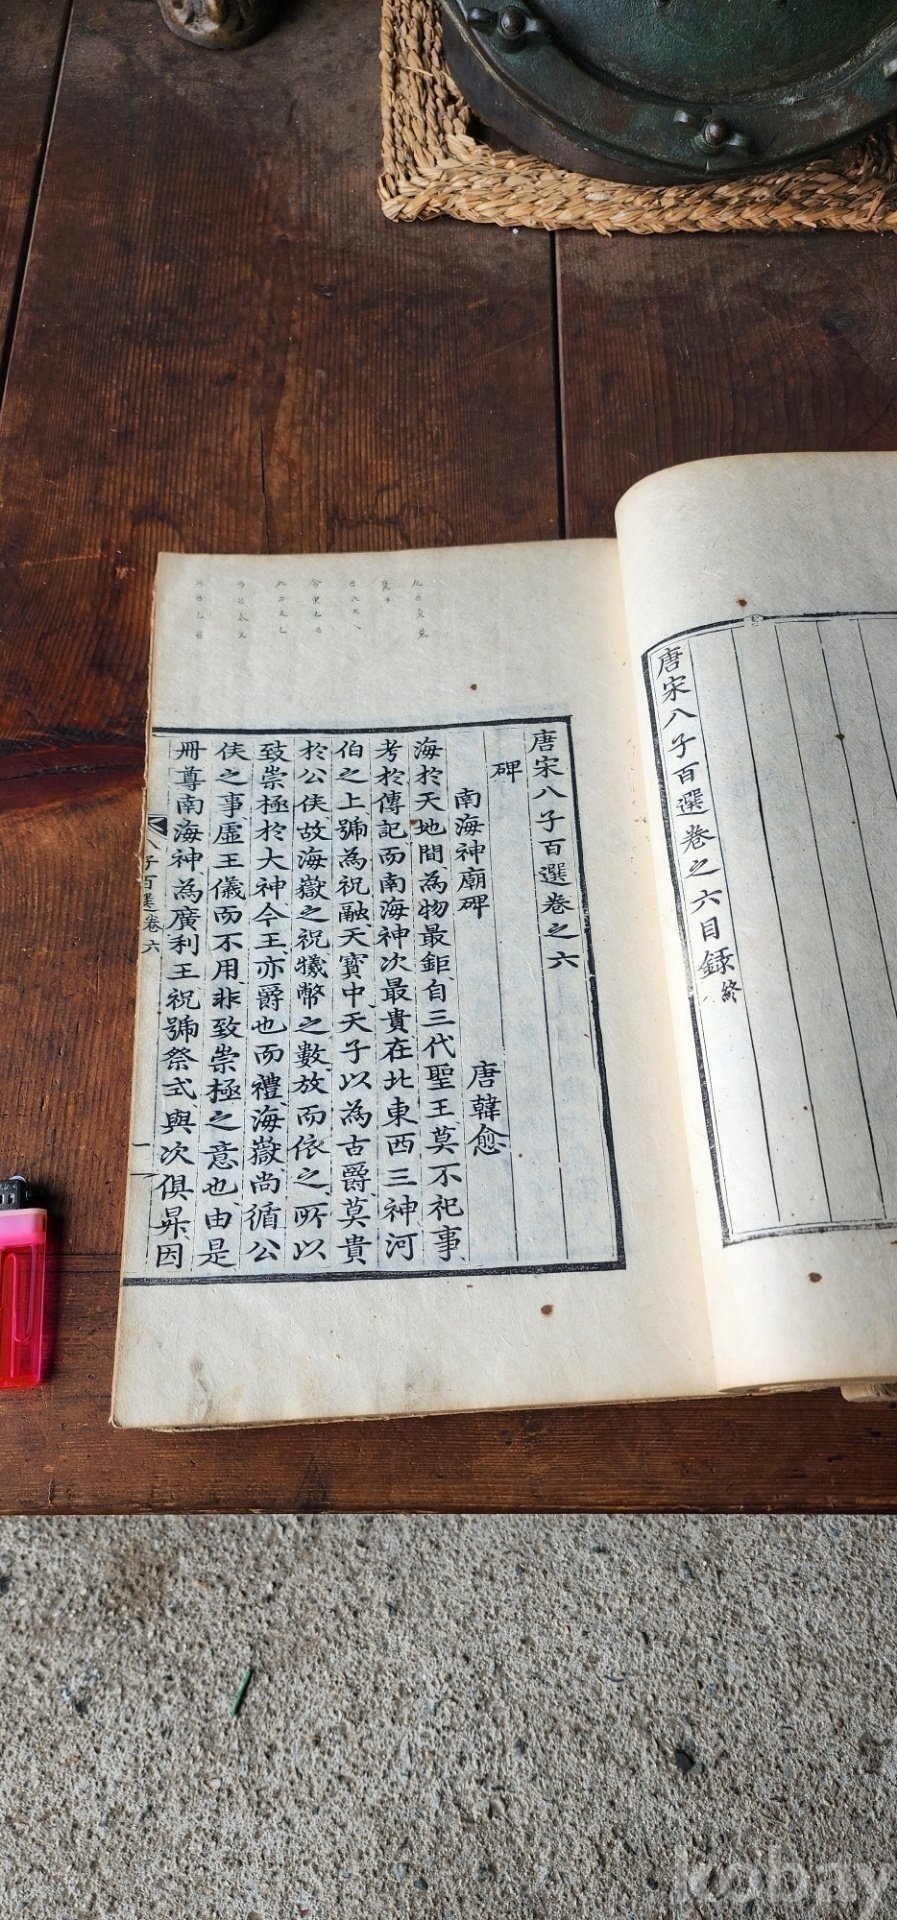 唐宋八子百選卷之六目録終
唐宋八子百選卷之六
碑
南海神廟碑 唐韓愈
海於天地間為物最鉅自三代聖王莫不祀事
考於傳記而南海神次最貴在北東西三神河
伯之上號為祝融天寶中天子以為古爵莫貴
於公侯故海嶽之祝犧幣之數放而依之所以
致崇極於大神今王亦爵也而禮海嶽尚循公
侯之事虛王儀而不用非致崇極之意也由是
冊尊南海神為廣利王祝號祭式與次俱昇因
八子百選卷六
一
kobay